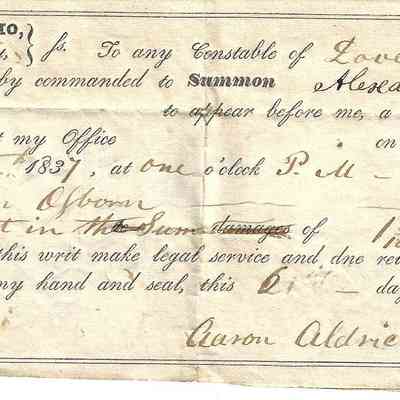 IO,
ss. To any Constable of Love
by commanded to Summon Alexa
to appear before me, a
t my Office on
1837, at one o'clock P. M
n Osborn
t in the Sum damages of
this writ make legal service and due re
my hand and seal, this 6th da
Aaron Aldric